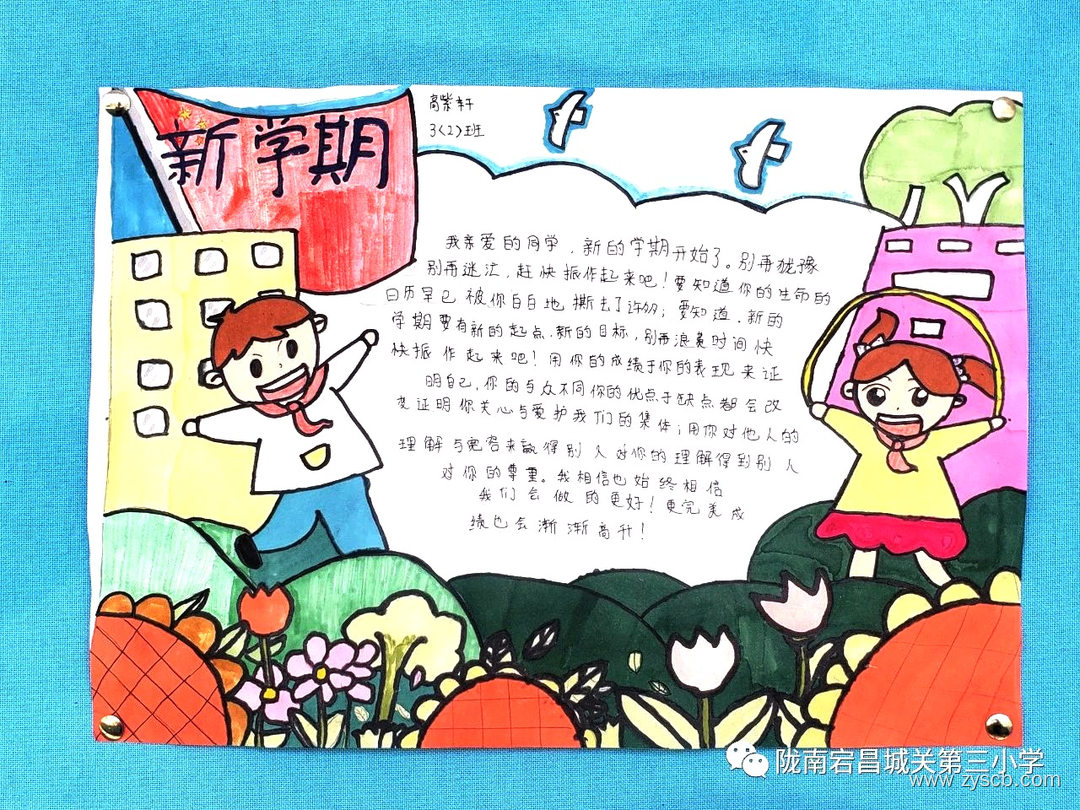 新学期
高紫轩
3(2)班
我亲爱的同学,新的学期开始了。别再犹豫
别再迷茫,赶快振作起来吧!要知道你的生命的
日历早已被你白白地撕去了许多;要知道,新的
学期要有新的起点、新的目标,别再浪费时间快
快振作起来吧!用你的成绩于你的表现来证
明自己,你的与众不同你的优点于缺点都会改
变证明你关心与爱护我们的集体;用你对他人的
理解与宽容来赢得别人对你的理解得到别人
对你的尊重。我相信也始终相信
我们会做的更好!更完美成
绩也会渐渐高升!
陇南宕昌城关第三小学
www.zyscb.com